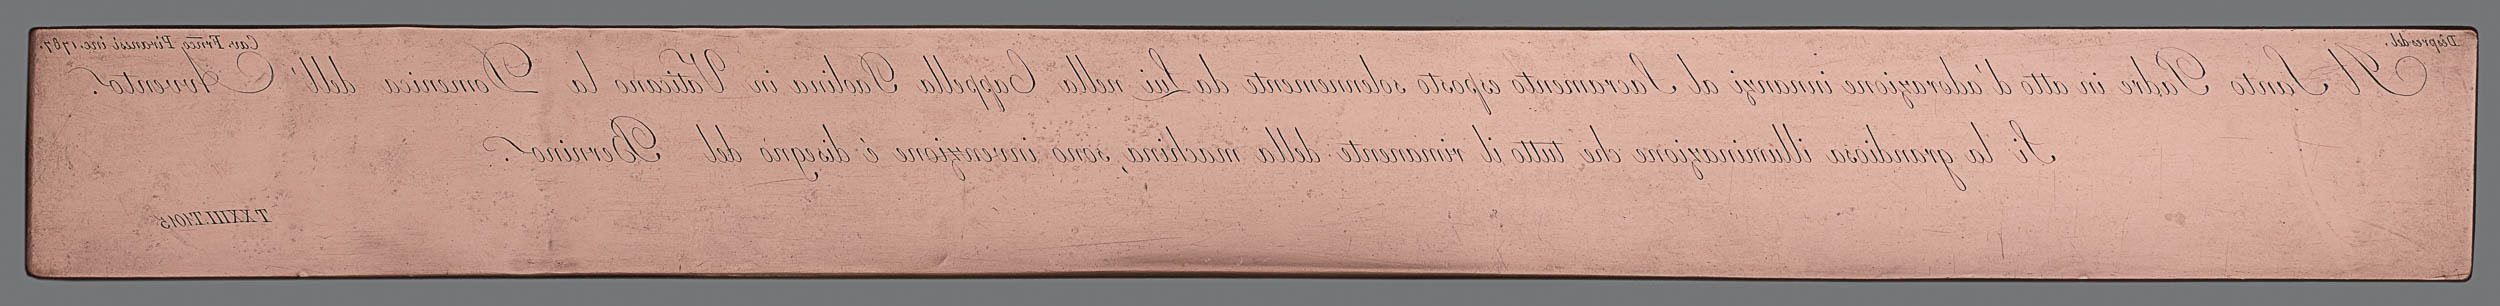 Désprez del.
Cav. Franc. Piranesi inc. 1787.
Il Santo Padre in atto d'adorazione innanzi al Sacramento esposto solennemente da Lui nella Cappella Paolina in Vaticano la Domenica dell' Avvento.
Sì la grandiosa illuminazione che tutto il rimanente della machina, sono invenzione é disegno del Bernino.
T XXIII.T.1015